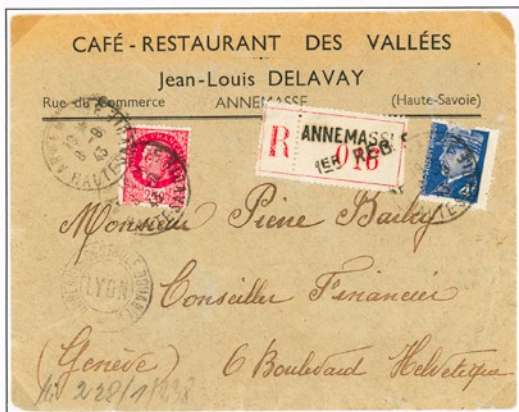 CAFÉ - RESTAURANT DES VALLÉES
Jean-Louis DELAVAY
Rue du Commerce ANNEMASSE (Haute-Savoie)
R ANNEMASSE 016
1ER REG.
Monsieur Pierre Bailly
Conseiller Financier
(Genève) 6 Boulevard Helvétique
LYON
228/1